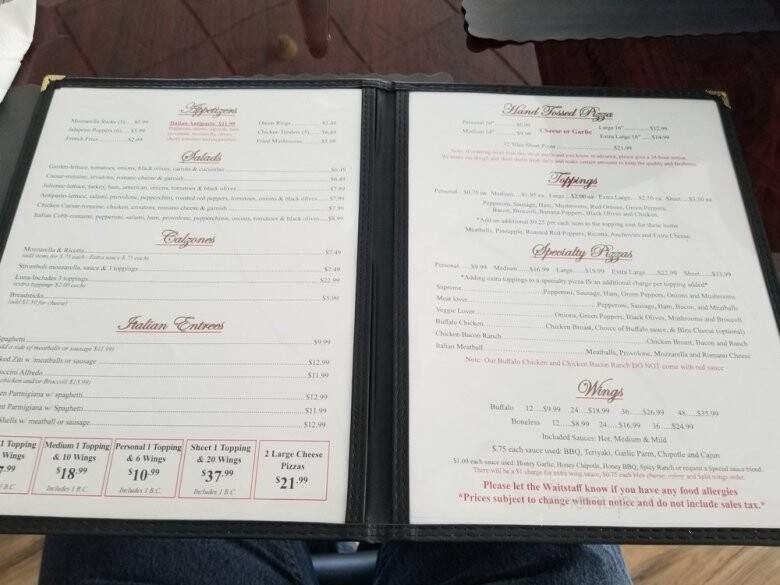 Appetizers
Mozzarella Sticks (5).....$5.99
Jalapeno Poppers (6).....$5.99
French Fries.....$2.99
Italian Antipasto $11.99
Onion Rings.....$2.49
Chicken Tenders (5).....$6.49
Fried Mushrooms.....$3.99
Salads
Garden-lettuce, tomatoes, onions, black olives, carrots & cucumbers.....$6.49
Caesar-romaine, croutons, romano cheese & garnish.....$6.49
Julienne-lettuce, turkey, ham, american, onions, tomatoes & black olives.....$7.99
Antipasto-lettuce, salami, provolone, pepperchinis, roasted red peppers, tomatoes, onions & black olives.....$7.99
Chicken Caesar-romaine, chicken, croutons, romano cheese & garnish.....$7.99
Italian Cobb-romaine, pepperoni, salami, ham, provolone, pepperchinis, onions, tomatoes & black olives.....$8.99
Calzones
Mozzarella & Ricotta.....$7.49
(add items for $.75 each - Extra sauce $.75 each)
Stromboli-mozzarella, sauce & 3 toppings.....$7.49
Extra-Includes 3 toppings.....$22.99
(extra toppings $2.00 each)
Breadsticks.....$5.99
(add $1.50 for cheese)
Italian Entrees
Spaghetti.....$9.99
add a side of meatballs or sausage $11.99)
ked Ziti w/meatballs or sausage.....$12.99
uccini Alfredo.....$11.99
chicken and/or Broccoli $13.99)
en Parmigiana w/ spaghetti.....$12.99
nt Parmigiana w/ Spaghetti.....$11.99
Shells w/ meatball or sausage.....$12.99
1 Topping
Wings
7.99
1 B.C.
Medium 1 Topping
& 10 Wings
$18.99
Includes 1 B.C.
Personal 1 Topping
& 6 Wings
$10.99
Includes 1 B.C.
Sheet 1 Topping
& 20 Wings
$37.99
Includes 1 B.C.
2 Large Cheese
Pizzas
$21.99
Hand Tossed Pizza
Personal 10".....$6.99
Medium 14".....$9.99
Cheese or Garlic
Large 16".....$12.99
Extra Large 18".....$14.99
32 Slice Sheet Pizza.....$21.99
Toppings
Personal...$0.75 ea Medium...$1.95 ea Large...$2.00 ea Extra Large...$2.50 ea Sheet...$3.50 ea
Pepperoni, Sausage, Ham, Mushrooms, Red Onions, Green Peppers,
Bacon, Broccoli, Banana Peppers, Black Olives and Chicken.
*Add an additional $0.25 per each item to the topping cost for these items
Meatballs, Pineapple, Roasted Red Peppers, Ricotta, Anchovies and Extra Cheese
Specialty Pizzas
Personal.....$9.99 Medium.....$16.99 Large.....$19.99 Extra Large.....$22.99 Sheet.....$33.99
*Adding extra toppings to a specialty pizza IS an additional charge per topping added*
Supreme.....Pepperoni, Sausage, Ham, Green Peppers, Onions and Mushrooms
Meat lover.....Pepperoni, Sausage, Ham, Bacon, and Meatballs
Veggie Lover.....Onions, Green Peppers, Black Olives, Mushrooms and Broccoli
Buffalo Chicken.....Chicken Breast, Choice of Buffalo sauce, & Bleu Cheese (optional)
Chicken Bacon Ranch.....Chicken Breast, Bacon and Ranch
Italian Meatball.....Meatballs, Provolone, Mozzarella and Romano Cheese
Note: Our Buffalo Chicken and Chicken Bacon Ranch DO NOT come with red sauce
Wings
Buffalo 12...$9.99 24...$18.99 36...$26.99 48...$35.99
Boneless 12...$8.99 24...$16.99 36...$24.99
Included Sauces: Hot, Medium & Mild
$.75 each sauce used: BBQ, Teriyaki, Garlic Parm, Chipotle and Cajun
$1.00 each sauce used: Honey Garlic, Honey Chipotle, Honey BBQ, Spicy Ranch or request a Special sauce blend.
There will be a $1 charge for extra wing sauce, $0.75 each bleu cheese, celery and Split wings order.
Please let the Waitstaff know if you have any food allergies
*Prices subject to change without notice and do not include sales tax.*